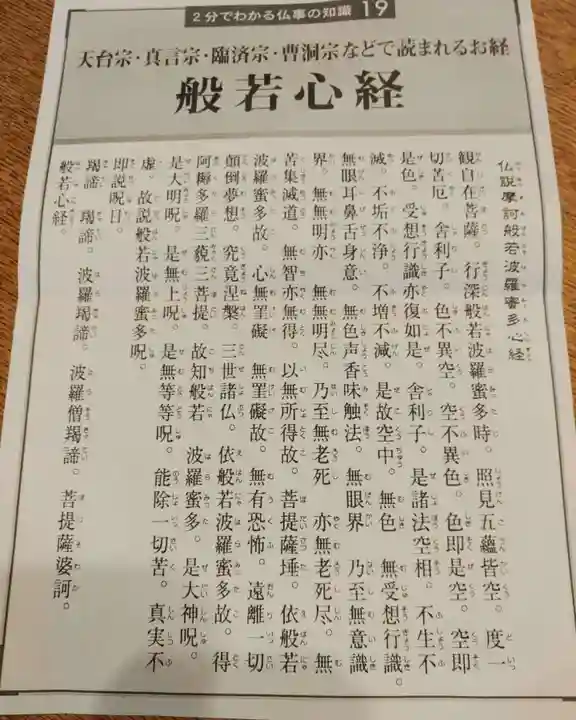 2分でわかる仏事の知識 19
天台宗・真言宗・臨済宗・曹洞宗などで読まれるお経
般若心経
仏説摩訶般若波羅蜜多心経
観自在菩薩。行深般若波羅蜜多時。照見五蘊皆空。度一
切苦厄。舎利子。色不異空。空不異色。色即是空。空即
是色。受想行識亦復如是。舎利子。是諸法空相。不生不
滅。不垢不浄。不増不減。是故空中。無色 無受想行識。
無眼耳鼻舌身意。無色声香味触法。無眼界 乃至無意識
界。無無明亦 無無明尽。乃至無老死 亦無老死尽。無
苦集滅道。無智亦無得。以無所得故。菩提薩埵。依般若
波羅蜜多故。心無罣礙 無罣礙故。無有恐怖。遠離一切
顛倒夢想。究竟涅槃。三世諸仏。依般若波羅蜜多故。得
阿耨多羅三藐三菩提。故知般若 波羅蜜多。是大神呪。
是大明呪。是無上呪。是無等等呪。能除一切苦。真実不
虚。故説般若波羅蜜多呪。
即説呪曰。
羯諦 羯諦。波羅羯諦。波羅僧羯諦。菩提薩婆訶。
般若心経。